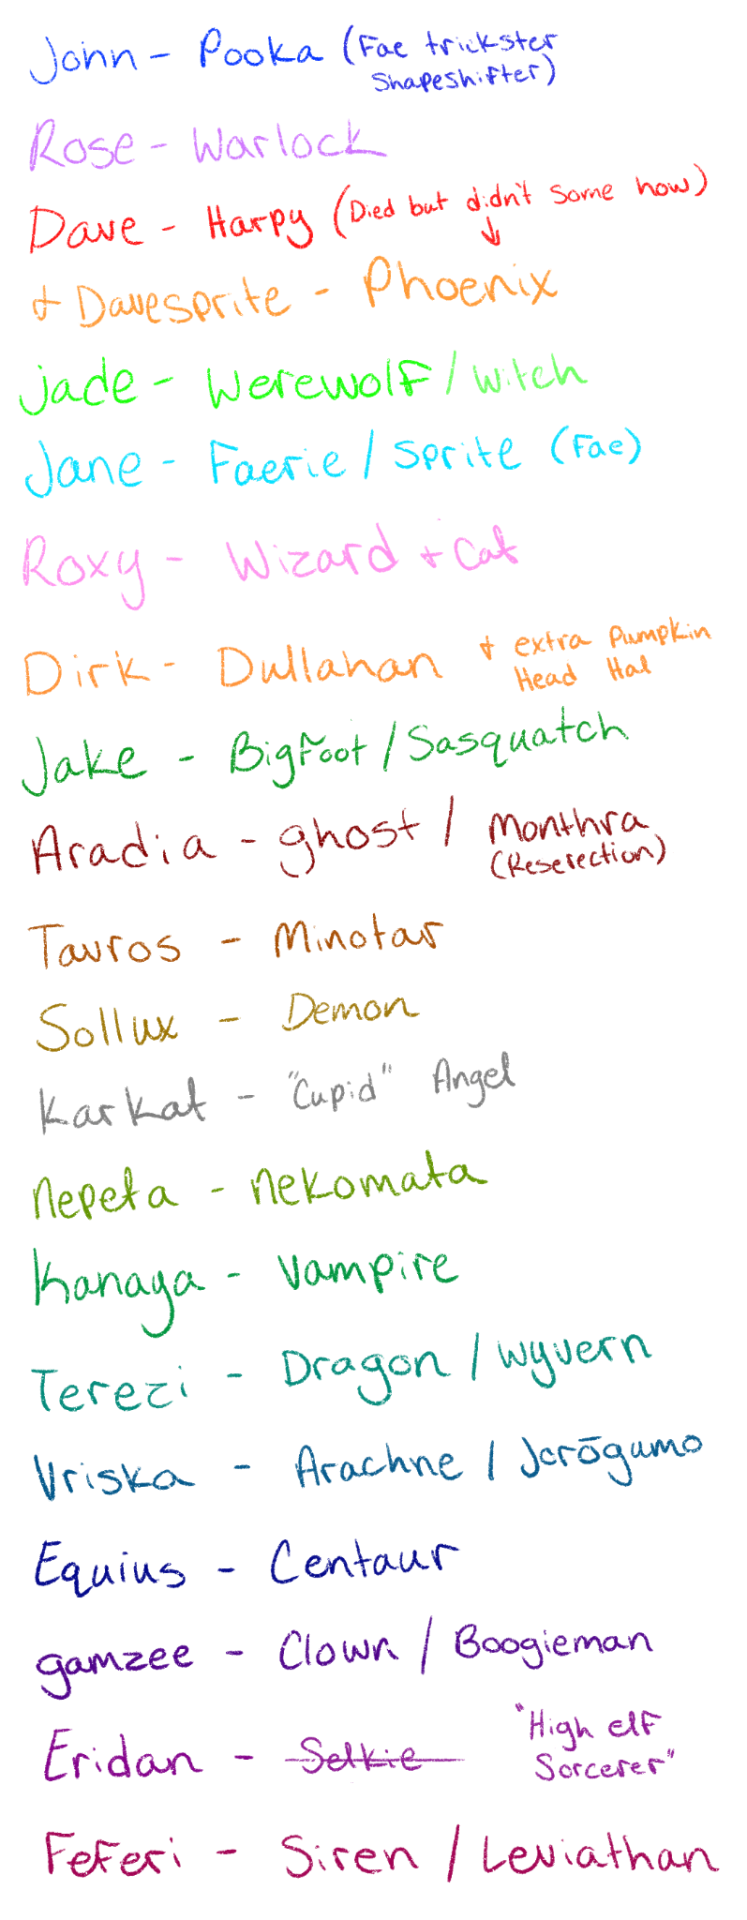 John - Pooka (Fae trickster
Shapeshifter)
Rose - Warlock
Dave - Harpy (Died but didn't some how)
+ Davesprite - Phoenix
Jade - Werewolf / Witch
Jane - Faerie / Sprite (Fae)
Roxy - Wizard + Cat
Dirk - Dullahan + extra Pumpkin
Head Hal
Jake - Bigfoot / Sasquatch
Aradia - ghost / Monthra
(Reserection)
Tavros - Minotar
Sollux - Demon
Karkat - "Cupid" Angel
Nepeta - Nekomata
Kanaya - Vampire
Terezi - Dragon / Wyvern
Vriska - Arachne / Jorōgumo
Equius - Centaur
gamzee - Clown / Boogieman
Eridan - Selkie "High elf
Sorcerer"
Feferi - Siren / Leviathan